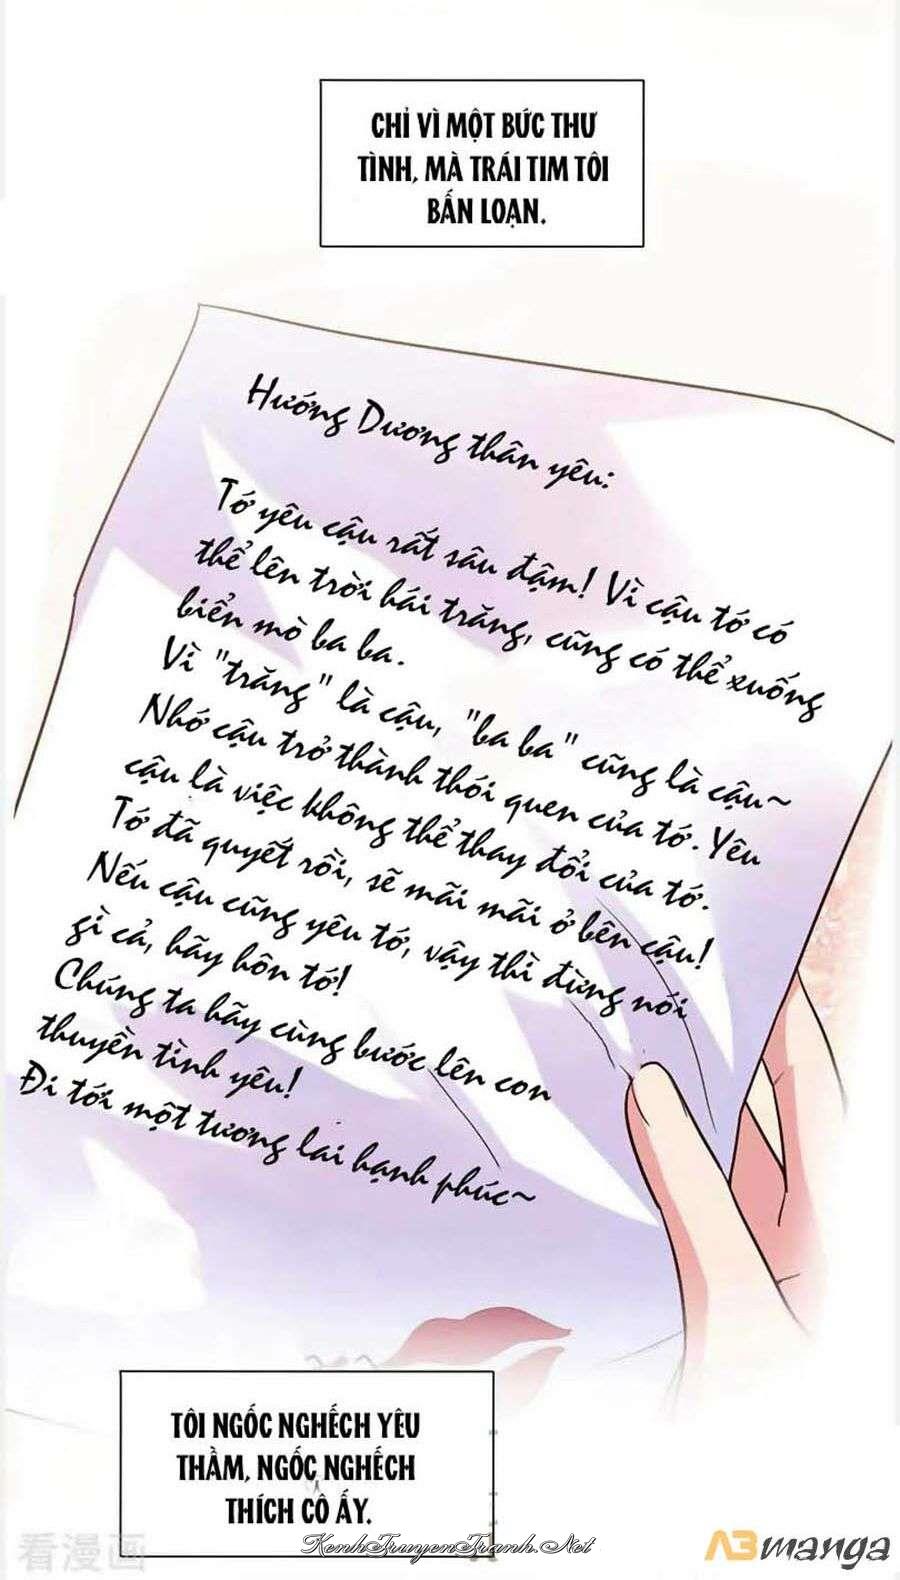 CHỈ VÌ MỘT BỨC THƯ
TÌNH, MÀ TRÁI TIM TÔI
BẤN LOẠN.
Hướng Dương thân yêu:
Tớ yêu cậu rất sâu đậm! Vì cậu tớ có
thể lên trời hái trăng, cũng có thể xuống
biển mò ba ba.
Vì "trăng" là cậu, "ba ba" cũng là cậu~
Nhớ cậu trở thành thói quen của tớ. Yêu
cậu là việc không thể thay đổi của tớ.
Tớ đã quyết rồi, sẽ mãi mãi ở bên cậu!
Nếu cậu cũng yêu tớ, vậy thì đừng nói
gì cả, hãy hôn tớ!
Chúng ta hãy cùng bước lên con
thuyền tình yêu!
Đi tới một tương lai hạnh phúc~
TÔI NGỐC NGHẾCH YÊU
THẦM, NGỐC NGHẾCH
THÍCH CÔ ẤY.
看漫画
KenhTruyenTranh.Net
A3manga